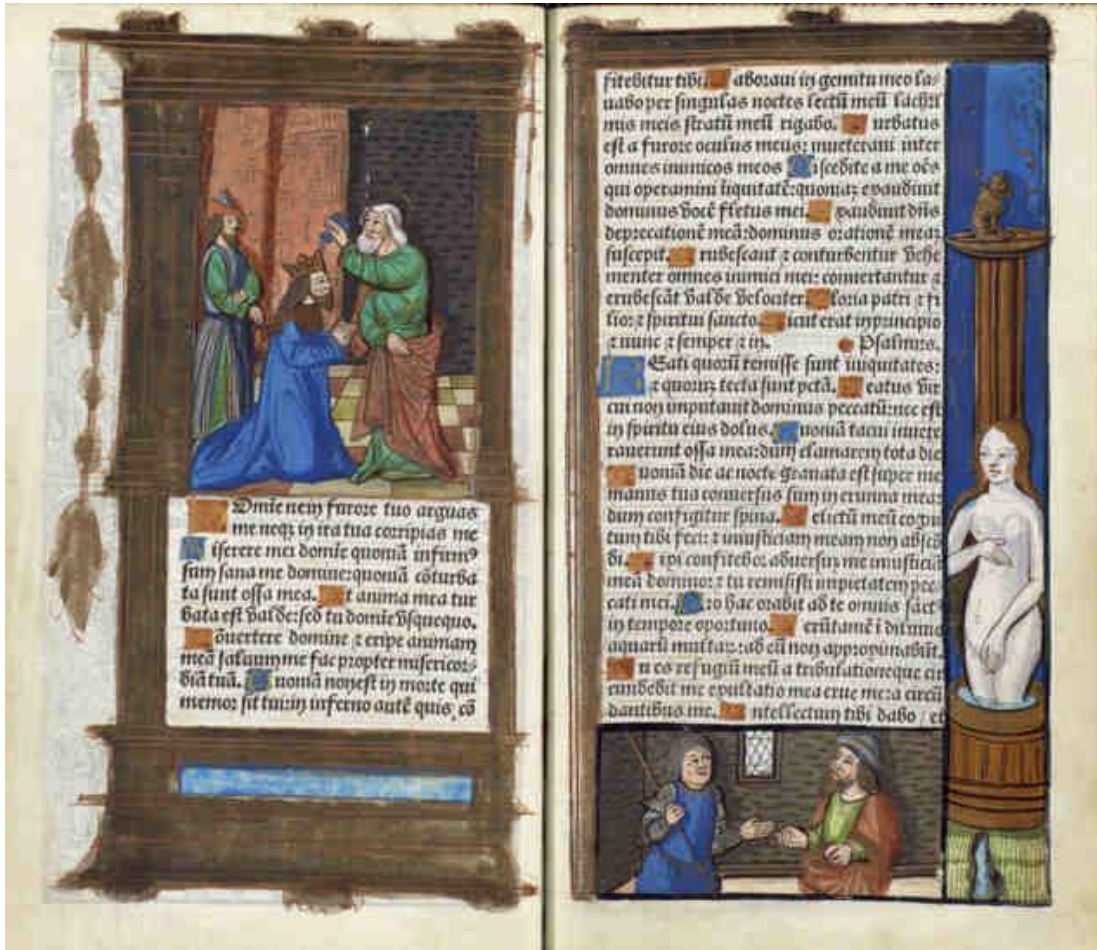 Dm̄e ne in furore tuo arguas
me neqz in ira tua corripias me
iserere mei domīe quoniā infirmꝰ
sum sana me domine: quoniā cōturba
ta sunt ossa mea. t anima mea tur
bata est valde: sed tu domīe vsquequo.
ōuertere domine ⁊ eripe animam
meā saluum me fac propter misericor
diā tuā. uoniā non est in morte qui
memor sit tui: in inferno autē quis cō
fitebitur tibi. aboraui in gemitu meo la
uabo per singulas noctes lectū meū lachri
mis meis stratū meū rigabo. urbatus
est a furore oculus meus: inueteraui inter
omnes inimicos meos iscedite a me oēs
qui operamini iniquitatē: quoniaz exaudiuit
dominus vocē fletus mei. xaudiuit dn̄s
deprecationē meā: dominus orationē meaz
suscepit. rubescant ⁊ conturbentur vehe
menter omnes inimici mei: conuertantur ⁊
erubescāt valde velociter. loria patri ⁊ fi
lio: ⁊ spiritui sancto. icut erat in principio
⁊ nunc ⁊ semper ⁊ in. Psalmus.
Eati quorū remisse sunt iniquitates:
⁊ quoruz tecta sunt pctā. eatus vir
cui non imputauit dominus peccatū: nec est
in spiritu eius dolus. uoniā tacui inuete
rauerunt ossa mea: dum clamarem tota die
uoniā die ac nocte grauata est super me
manus tua conuersus sum in erunna mea:
dum configitur spina. elictū meū cogni
tum tibi feci: ⁊ iniusticiam meam non abscō
di. ixi confitebor aduersuz me iniusticiā
meā domino: ⁊ tu remisisti impietatem pec
cati mei. ro hac orabit ad te omnis sāct
in tempore oportuno. erūtamē ī diluuio
aquarū multaz: ad eū non approximabūt.
u es refugiū meū a tribulatione que cir
cundedit me exultatio mea erue me: a circū
dantibus me. ntellectum tibi dabo / et